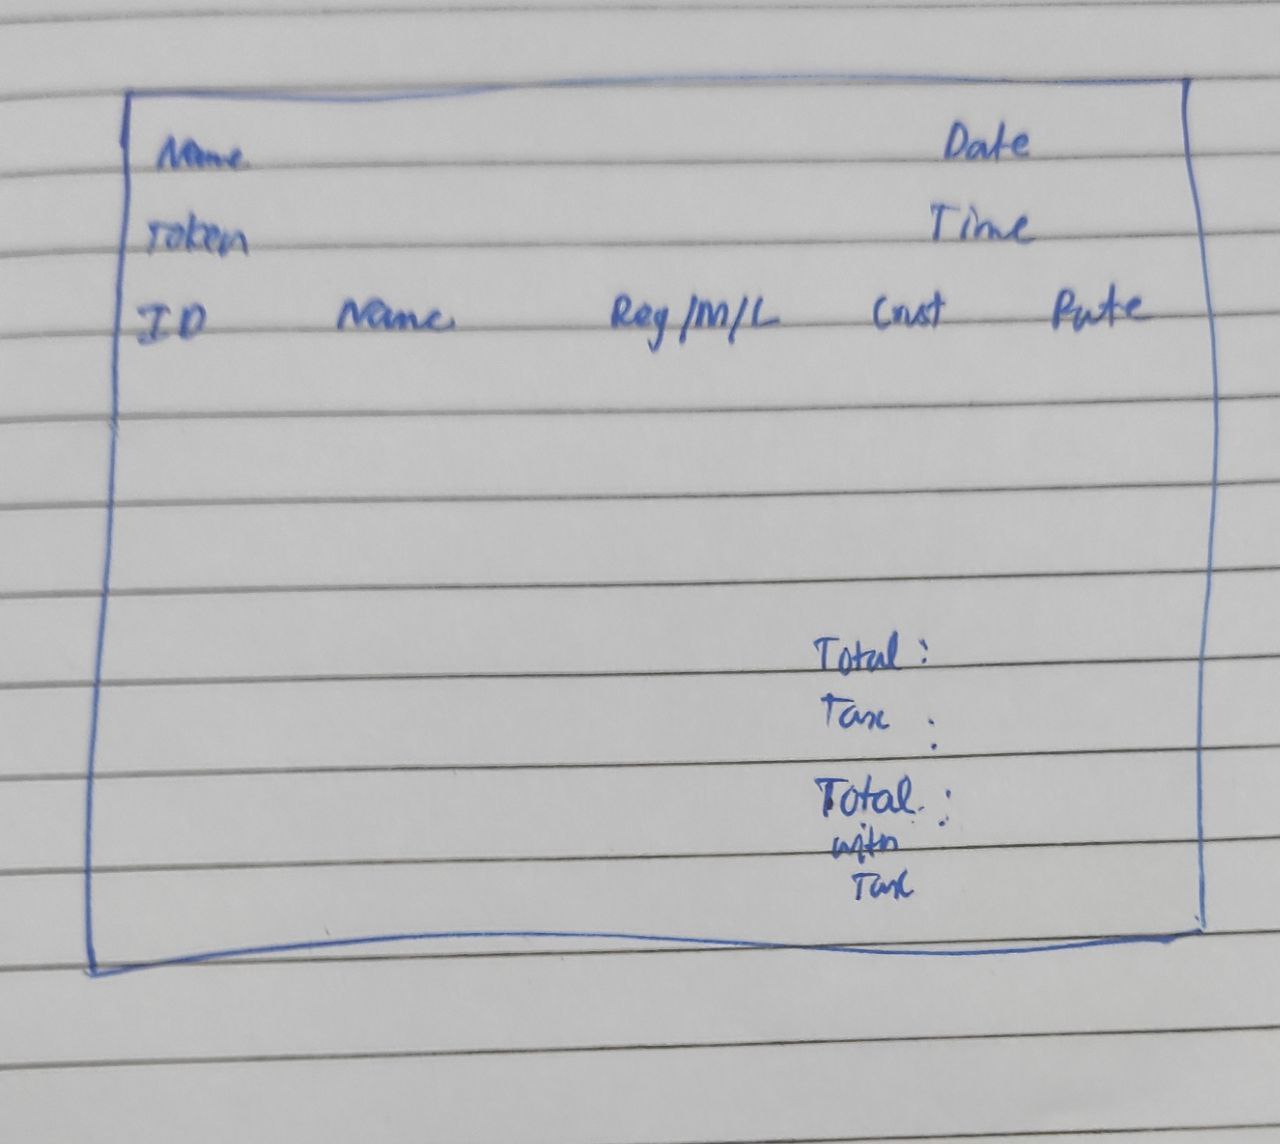 Name Date
Token Time
ID Name Reg/M/L Crust Rate
Total :
Tax :
Total :
with
Tax